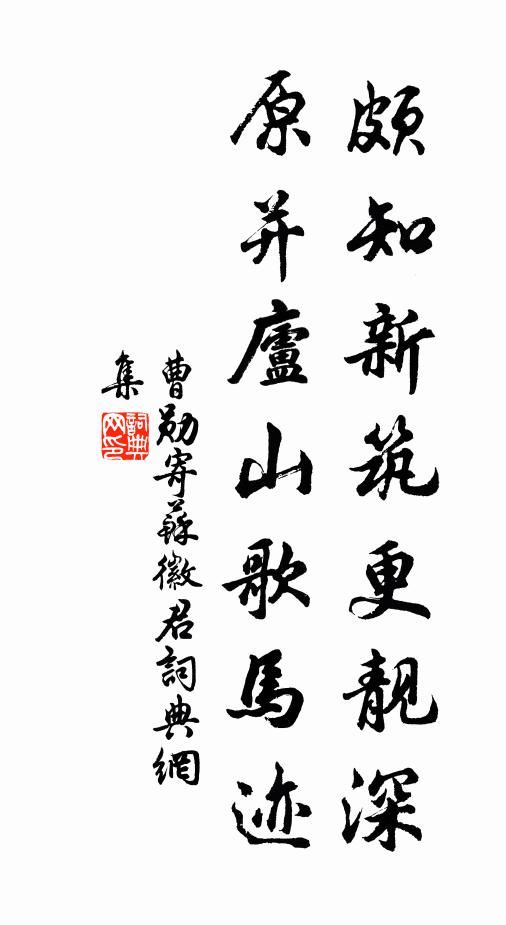 頗知新筑更靚深
原并廬山歌馬迹
曹勛寄蘇徽君詞典網
集
詞典網印